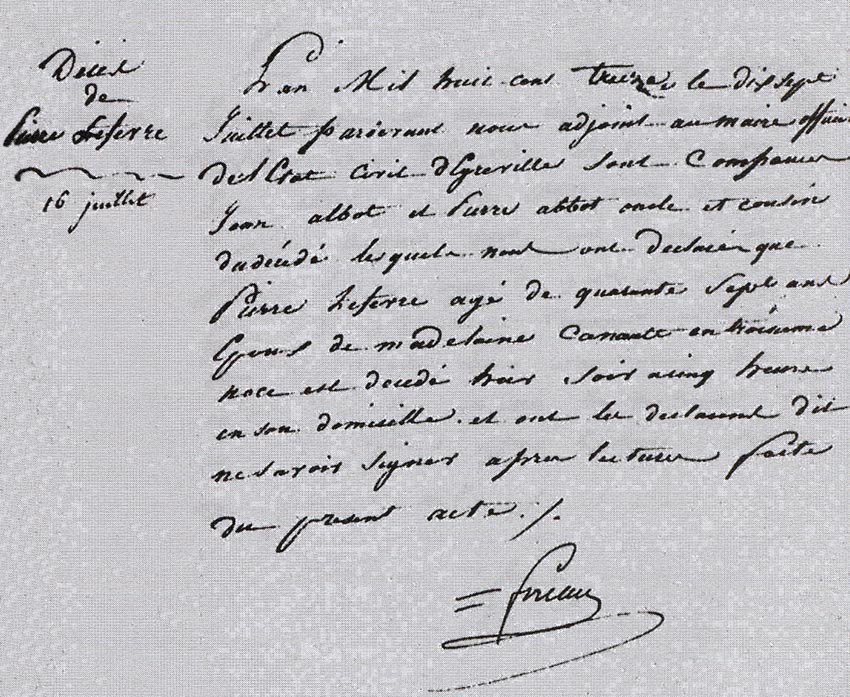 Décès
de
Pierre Lefevre
16 juillet
L'an Mil huit cent treize le dix sept
Juillet pardevant nous adjoint au maire officier
de l'Etat Civil d'Egreville sont Comparus
Jean abbot et Pierre abbot oncle et cousin
du décédé lesquels nous ont declaré que
Pierre Lefevre agé de quarante Sept ans
Epoux de madelaine Canault en troisieme
noce est decedé hier soir a cinq heure
en son domicille. et ont les declarent dit
ne savoir signer apres lecture faite
du present acte ./.